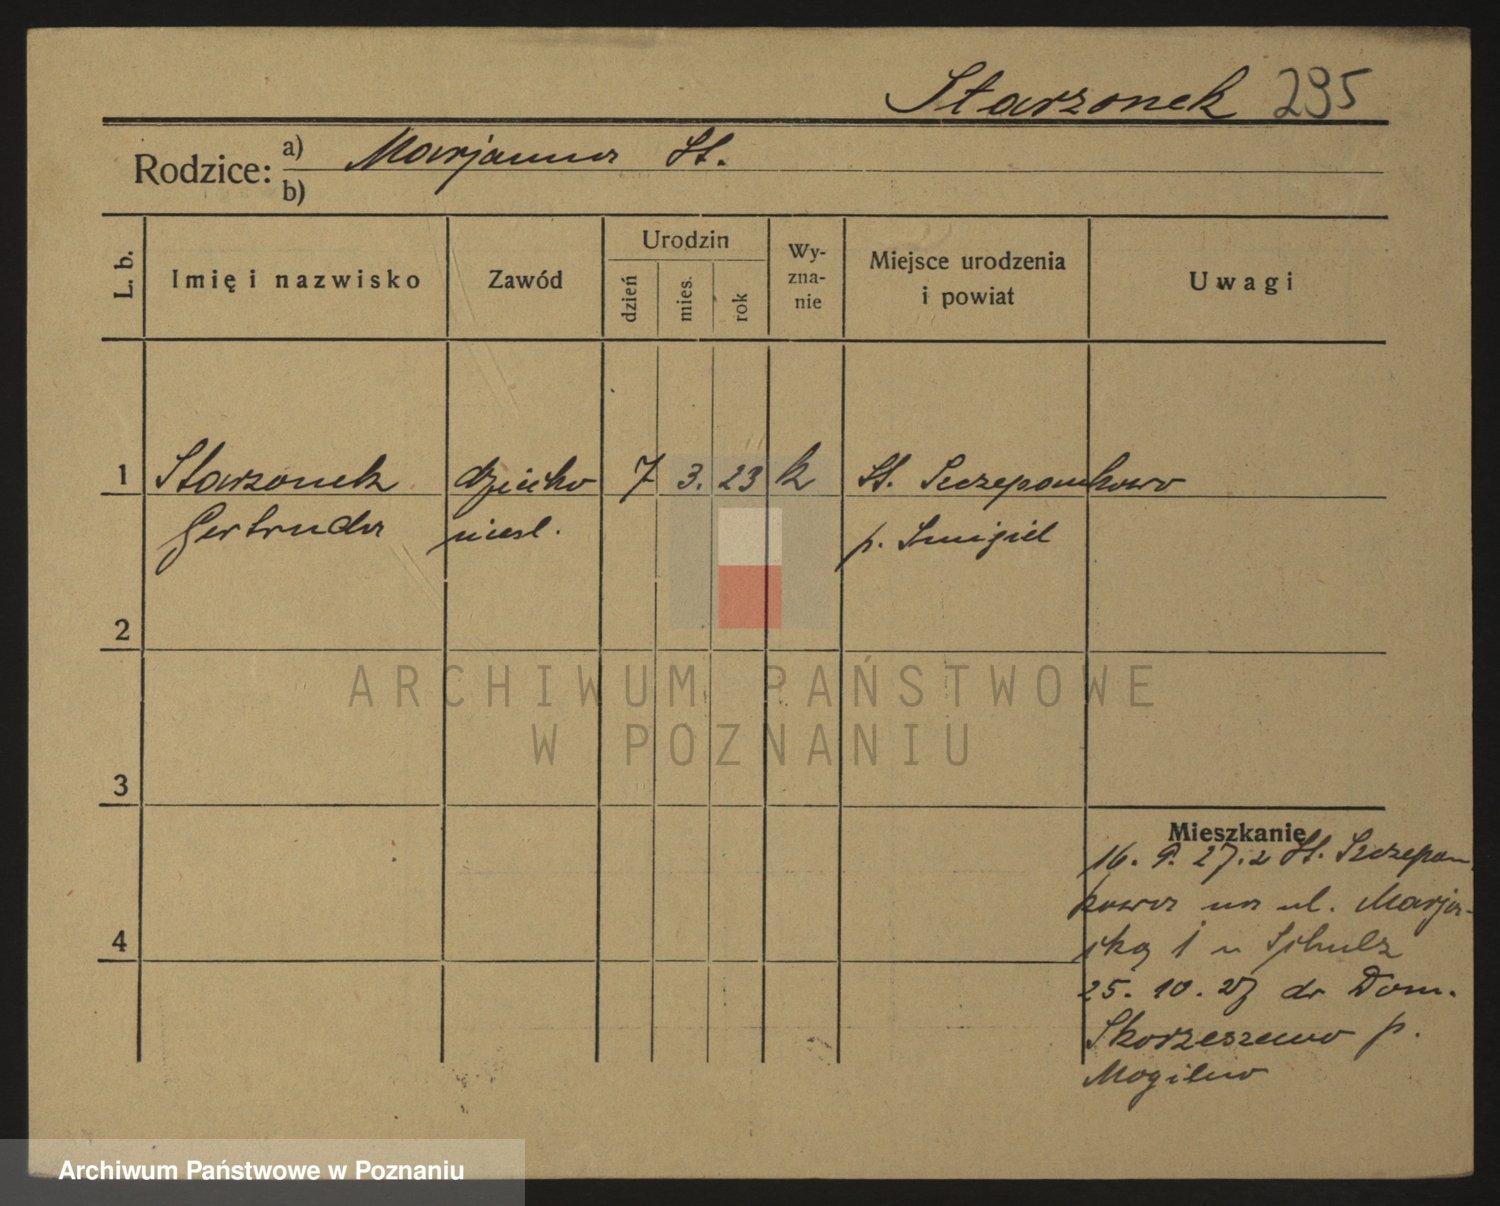 Starzonek 295
Rodzice: a) Marjanna St.
b)
L. b.
Imię i nazwisko
Zawód
Urodzin
dzień
mies.
rok
Wy-
zna-
nie
Miejsce urodzenia
i powiat
Uwagi
1 Starzonek dziecko 7 3. 23 k St. Szczepankowo
Gertruda niesl. p. Śmigiel
2
3
4
Mieszkanie
16. 9. 27. z St. Szczepan
kowa na ul. Marja-
ską 1 u
25. 10. 27 do Dom.
Skorzeszewo p.
Mogilno
ARCHIWUM PAŃSTWOWE
W POZNANIU
Archiwum Państwowe w Poznaniu